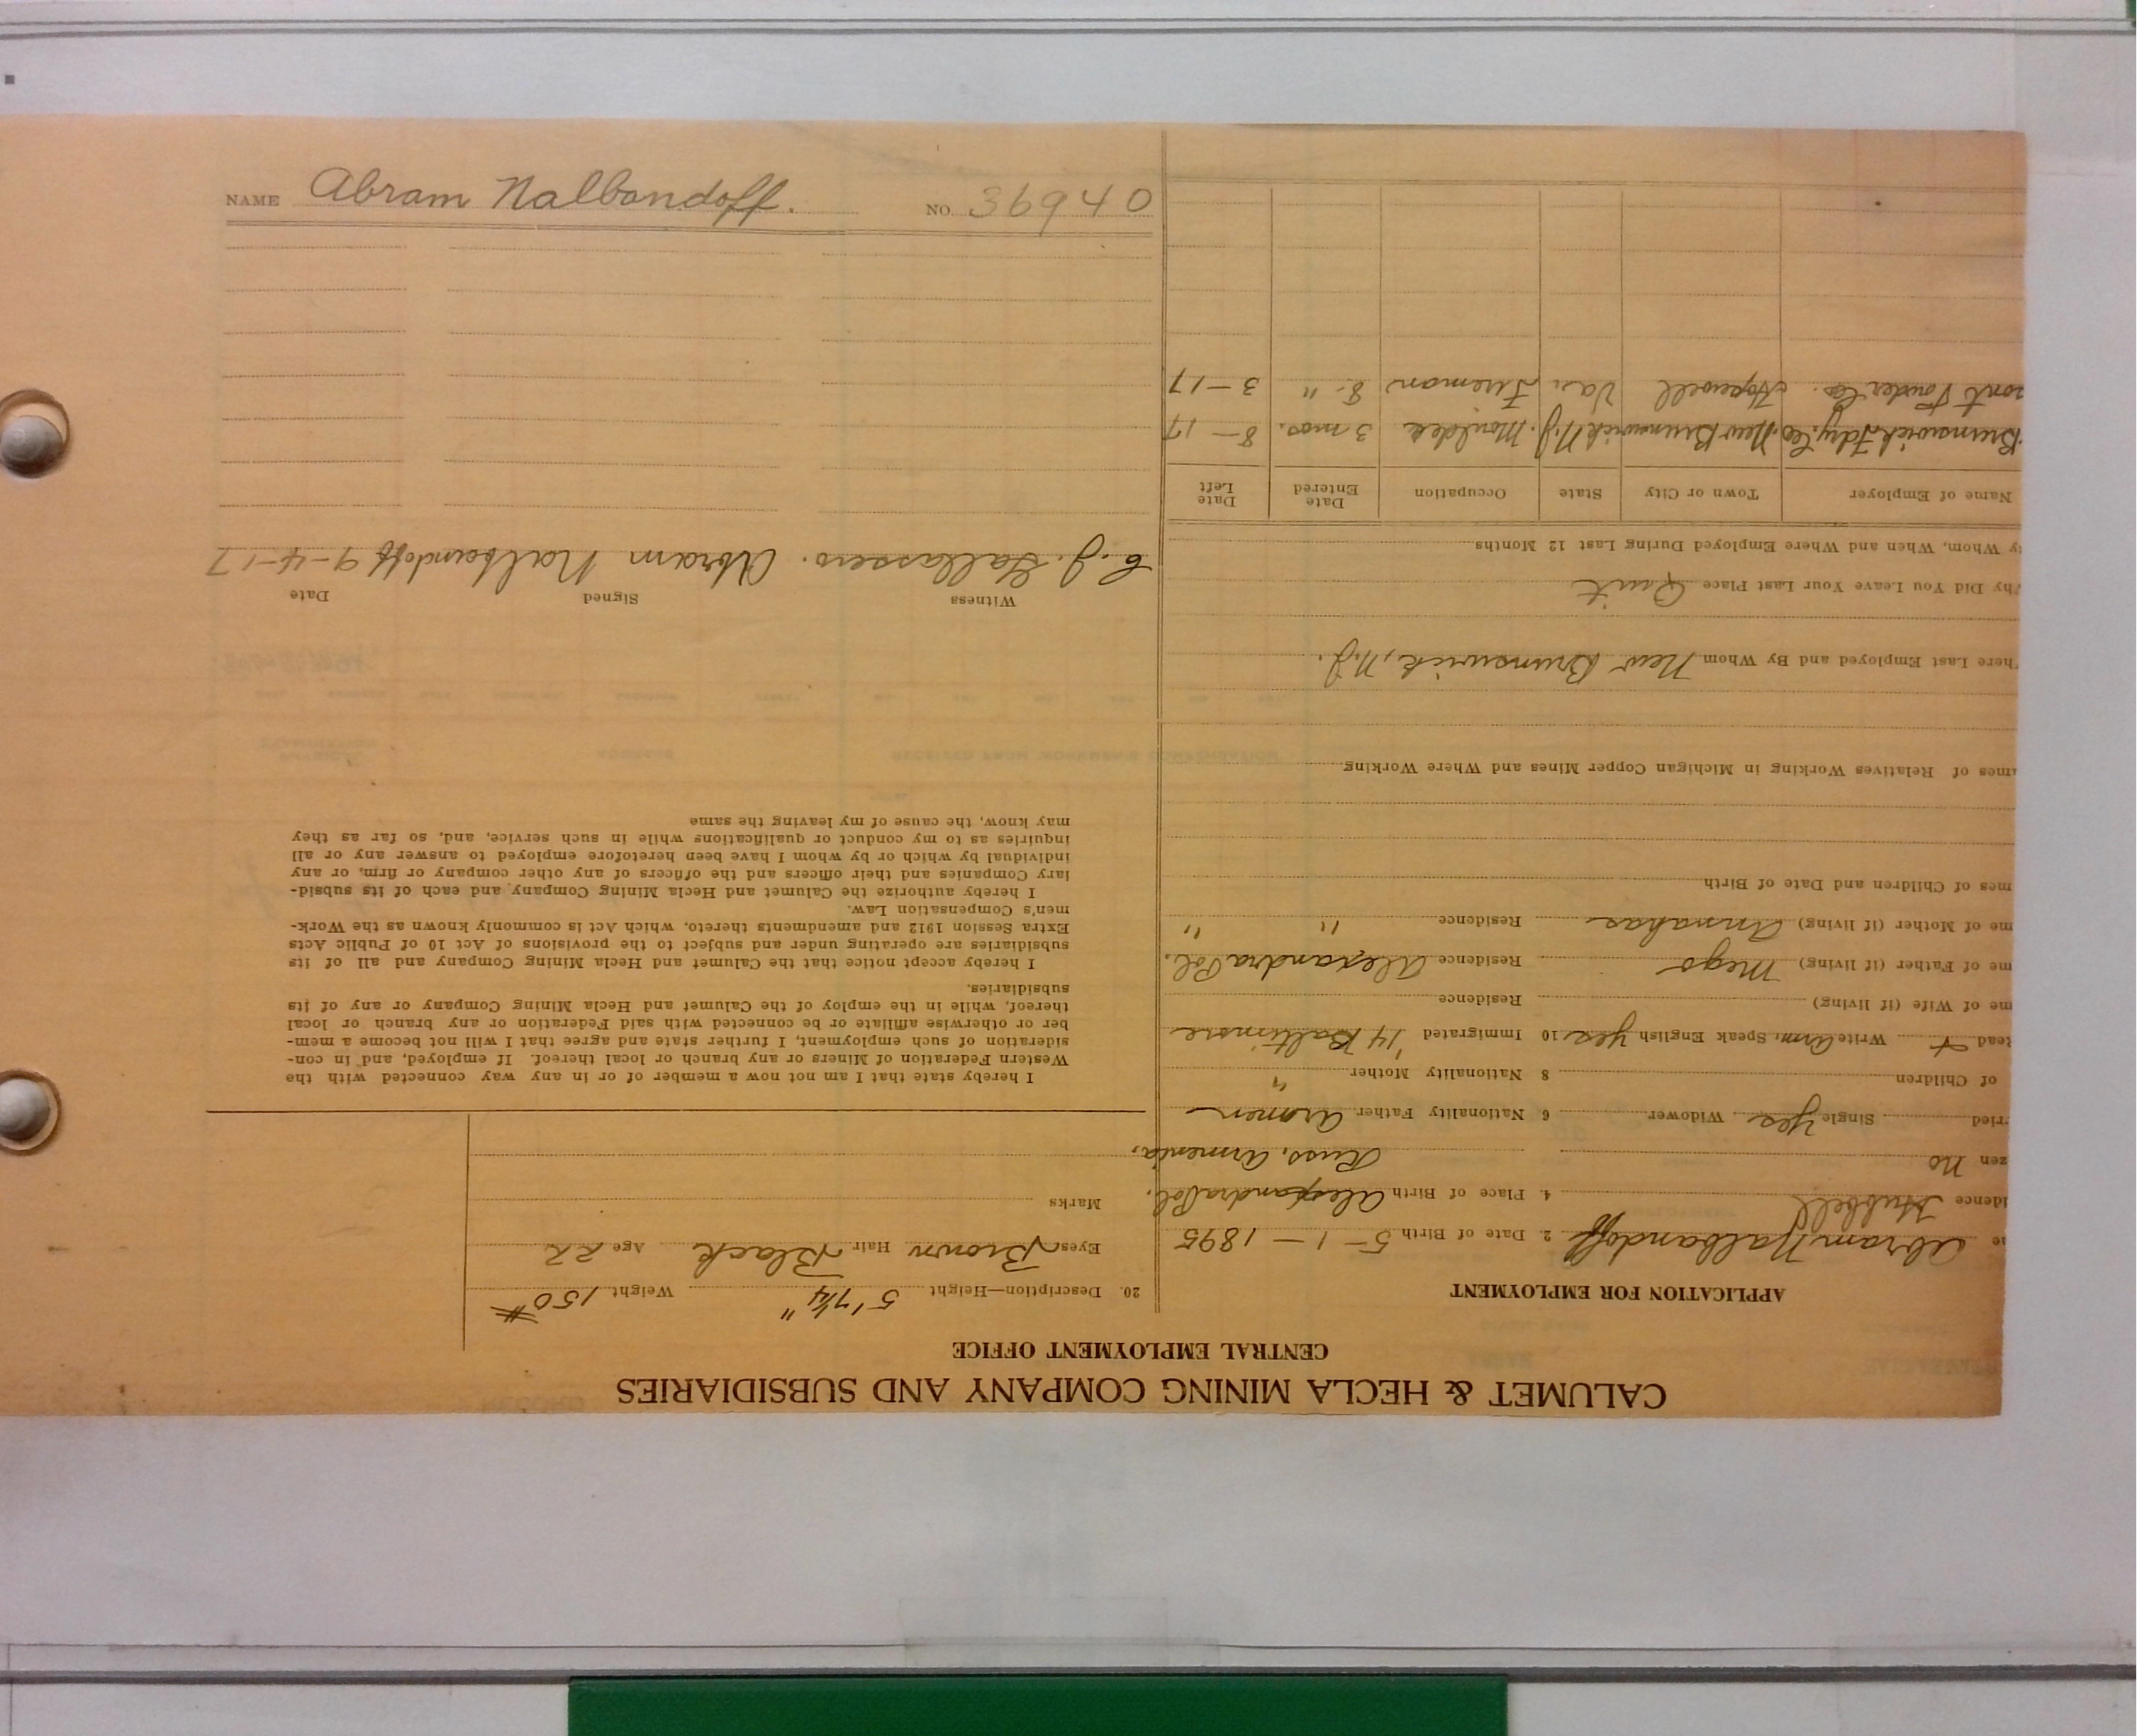 CALUMET & HECLA MINING COMPANY AND SUBSIDIARIES
CENTRAL EMPLOYMENT OFFICE
APPLICATION FOR EMPLOYMENT
Abram Nalbandoff 2. Date of Birth 5-1-1895
idence Hubbell 4. Place of Birth Alexandrapol.
zen No Russ. Armenia,
ried Single Yes Widower 6 Nationality Father Armen
of Children 8 Nationality Mother "
Read Write Arm. Speak English Yes 10 Immigrated '14 Baltimore
me of Wife (if living) Residence
me of Father (if living) Mego Residence Alexandra Pol.
me of Mother (if living) Annahas Residence " "
mes of Children and Date of Birth
ames of Relatives Working in Michigan Copper Mines and Where Working
here Last Employed and By Whom New Brunswick, N.J.
hy Did You Leave Your Last Place Quit
y Whom, When and Where Employed During Last 12 Months
Name of Employer Town or City State Occupation Date Entered Date Left
Brunswick Fdry. Co. New Brunswick N.J. Moulder 3 mos. 8-17
ont Powder Co. Hopewell Va. Fireman 8 " 3-17
20. Description—Height 5'7 1/4" Weight 150#
Eyes Brown Hair Black Age 22
Marks
I hereby state that I am not now a member of or in any way connected with the
Western Federation of Miners or any branch or local thereof. If employed, and in con-
sideration of such employment, I further state and agree that I will not become a mem-
ber or otherwise affiliate or be connected with said Federation or any branch or local
thereof, while in the employ of the Calumet and Hecla Mining Company or any of its
subsidiaries.
I hereby accept notice that the Calumet and Hecla Mining Company and all of its
subsidiaries are operating under and subject to the provisions of Act 10 of Public Acts
Extra Session 1912 and amendments thereto, which Act is commonly known as the Work-
men's Compensation Law.
I hereby authorize the Calumet and Hecla Mining Company and each of its subsid-
iary Companies and their officers and the officers of any other company or firm, or any
individual by which or by whom I have been heretofore employed to answer any or all
inquiries as to my conduct or qualifications while in such service, and, so far as they
may know, the cause of my leaving the same
Witness Signed Date
Abram Nalbandoff 9-4-17
NAME Abram Nalbandoff. NO. 36940